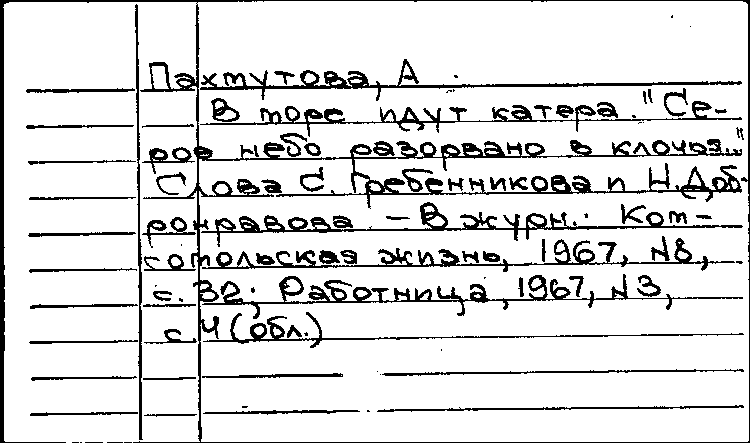 Пахмутова, А.
В море идут катера. "Се-
рое небо разорвано в клочья..."
Слова С. Гребенникова и Н. Доб-
ронравова - В журн.: Ком-
сомольская жизнь, 1967, №8,
с. 32; Работница, 1967, №3,
с. 4 (обл.)